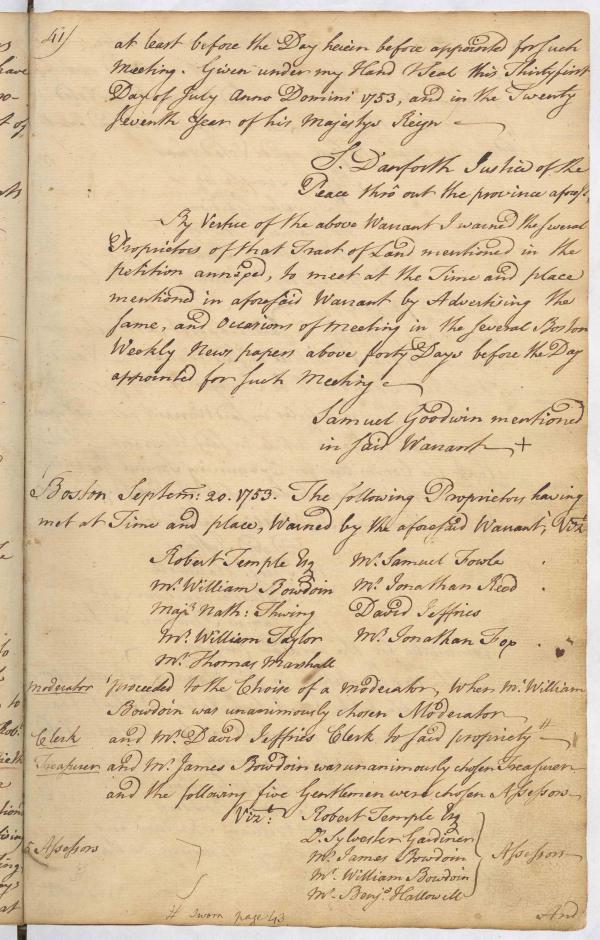 41
at least before the Day herein before appointed for such
Meeting. Given under my Hand & Seal this Thirty first
Day of July Anno Domini 1753, and in the Twenty
Seventh Year of his Majestys Reign
S. Danforth Justice of the
Peace thrō out the province afores.d
By Vertue of the above Warrant I warned the several
Proprietors of that Tract of Land mentioned in the
petition annexed, to meet at the Time and place
mentioned in aforesaid Warrant by Advertising the
same, and Occasions of Meeting in the several Boston
Weekly News papers above forty Days before the Day
appointed for such Meeting
Samuel Goodwin mentioned
in said Warrant +
Boston Septem: 20. 1753. The following Proprietors having
met at Time and place, Warned by the aforesaid Warrant, Vizt
Robert Temple Esq Mr. Samuel Fowle
Mr. William Bowdoin Mr. Jonathan Reed
Majr. Nath: Thwing David Jeffries
Mr. William Taylor Mr. Jonathan Fox
Mr. Thomas Marshall
Moderator proceeded to the Choice of a Moderator, When Mr. William
Bowdoin was unanimously chosen Moderator
Clerk and Mr. David Jeffries Clerk to said propriety #
Treasurer and Mr. James Bowdoin was unanimously chosen Treasurer
and the following five Gentlemen were chosen Assessors
Vizt: Robert Temple Esq
Dr. Sylvester Gardiner
5 Assessors Mr. James Bowdoin Assessors
Mr. William Bowdoin
Mr. Benja. Hallowell
# Sworn page 43
And